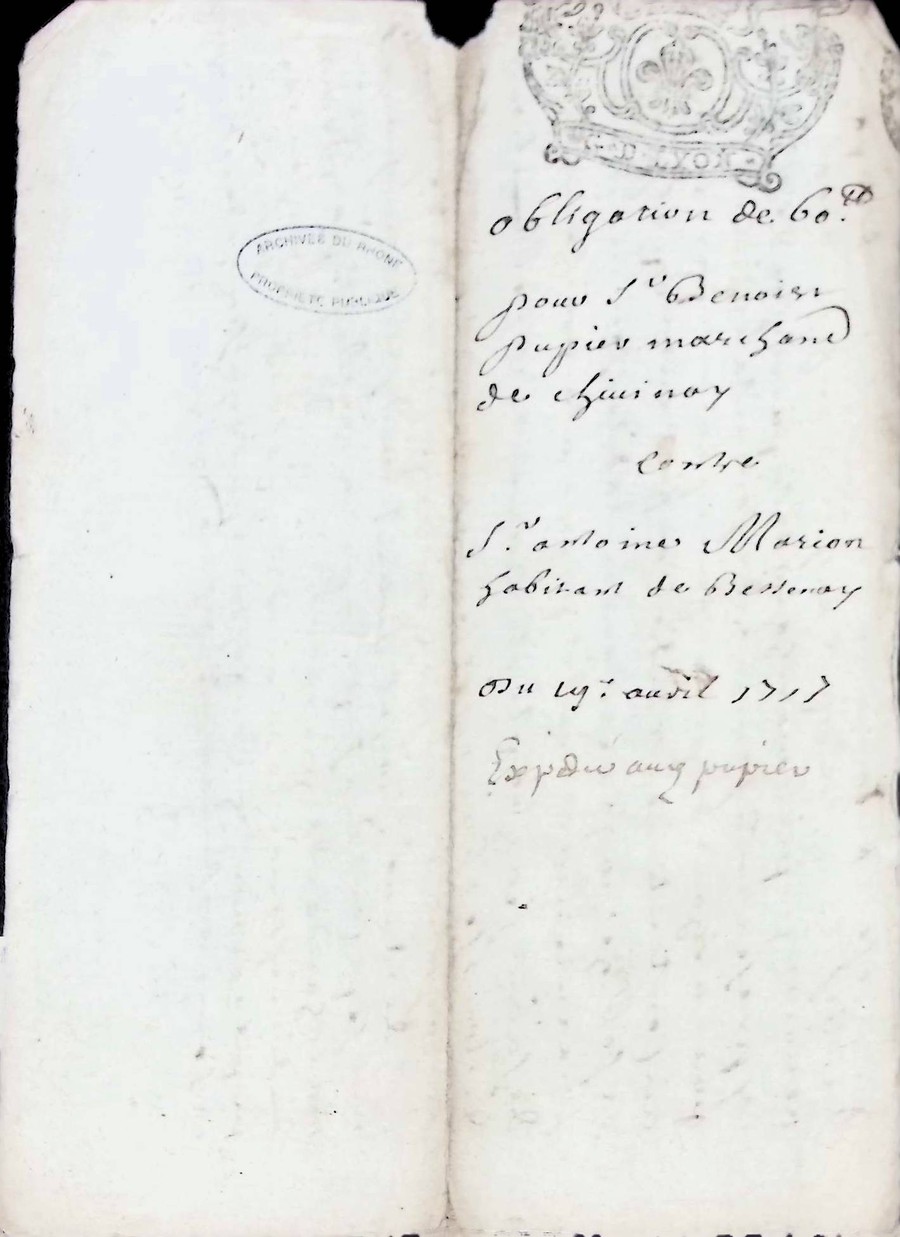 G. D. LYON
ARCHIVES DU RHONE
PROPRIETE PUBLIQUE
obligation de 60.lt
pour Sr Benoist
pupier marchand
de chivinay
Contre
Sr. antoine Marion
habitant de Bessenay
Du 19e avril 1717
Expedié aud pupier